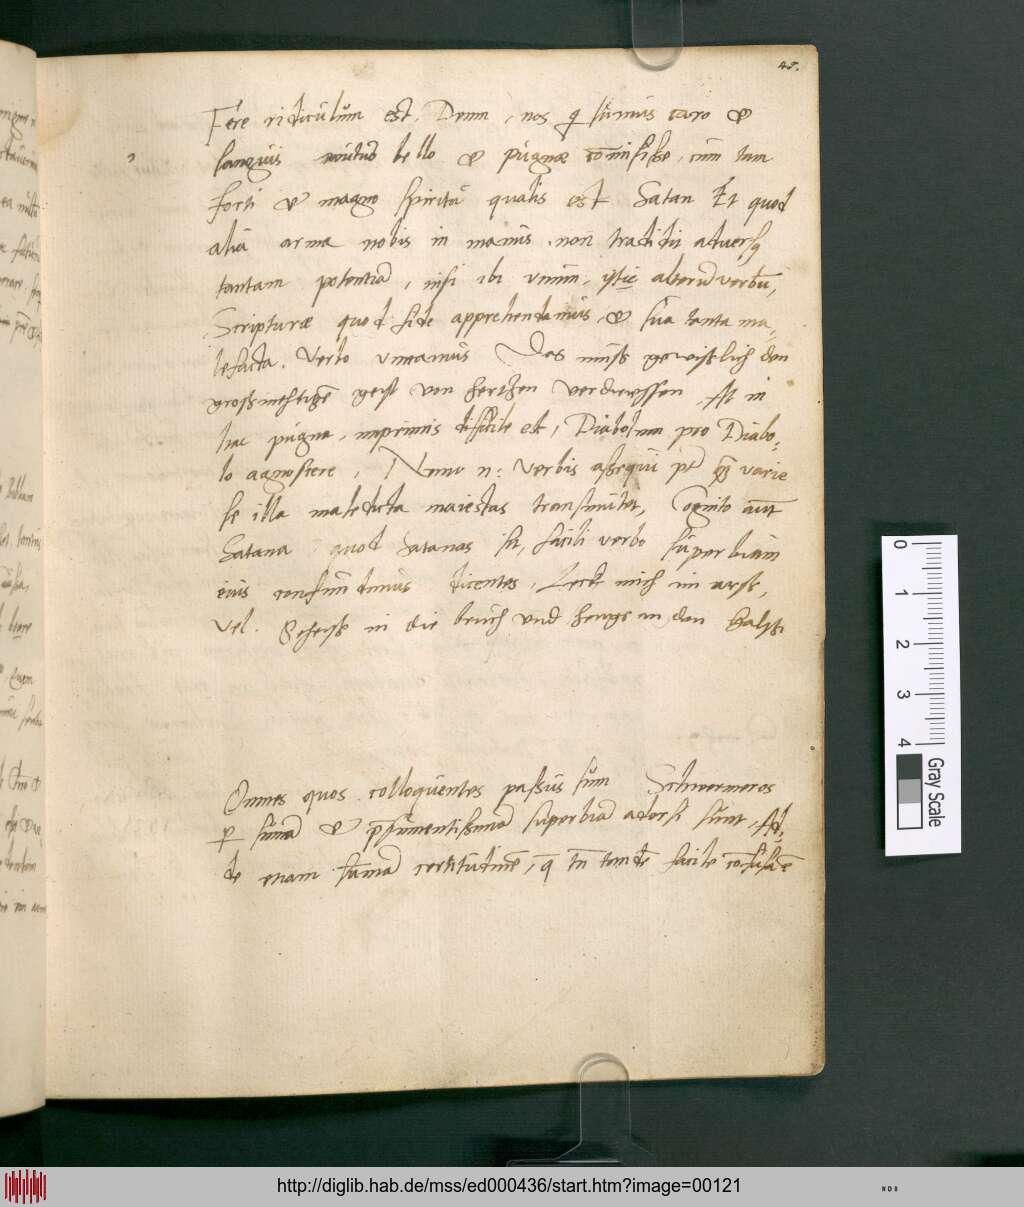 48.
Fere ridiculum est, Deum, nos q sumus caro et
sanguis bello et pugnæ comisisse, cum tam
forti et magno spiritu qualis est Satan Et quod
alia arma nobis in manus non tradidit adversus
tantam potentiã, nisi ibi unum, istic alterũ verbũ,
Scripturæ quod fide apprehendamus, et sua tanta ma,
lefacta. verbo vincamus Das muss gewislich den
grosmechtigẽ geist von hertzen verdriessen, At in
hac pugna, imprimis difficile est, Diabolum pro Diabo,
lo agnoscere, Nemo n: verbis assequi pt̃ varie
se illa maledicta maiestas transmutet, Cognito aũt
Satana quod satanas sit, facili verbo superbiam
eius confundimus dicentes, Leck mich im arss,
Vel. Scheiss in die bruch und hengs an den halss.
Omnes quos colloquentes passus sum Schwermeros
p sum̃ã et p̃sumentissimã superbiã adorsi sunt, Ad,
de etiam sum̃ã certitudinẽ, q̃ tñ tandẽ facile confusa ẽ
0 1 2 3 4
Gray Scale
http://diglib.hab.de/mss/ed000436/start.htm?image=00121